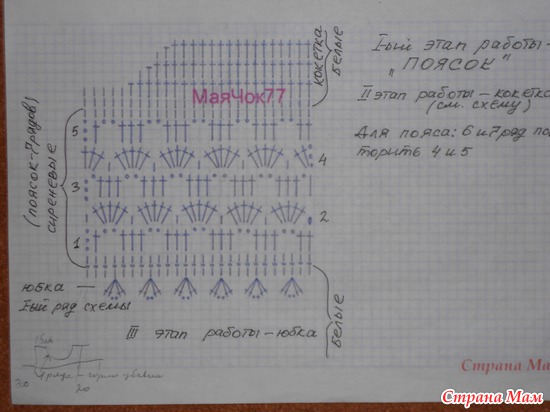 Iый этап работы-
"ПОЯСОК"
II этап работы-кокетка
(см. схему)
Для пояса: 6 и 7 ряд пов
торить 4 и 5
кокетка
белые
МаяЧок77
(поясок-7 рядов)
сиреневые
5
4
3
2
1
юбка
Iый ряд схемы
белые
III этап работы-юбка
20
30
Страна Ма
Страна Мам